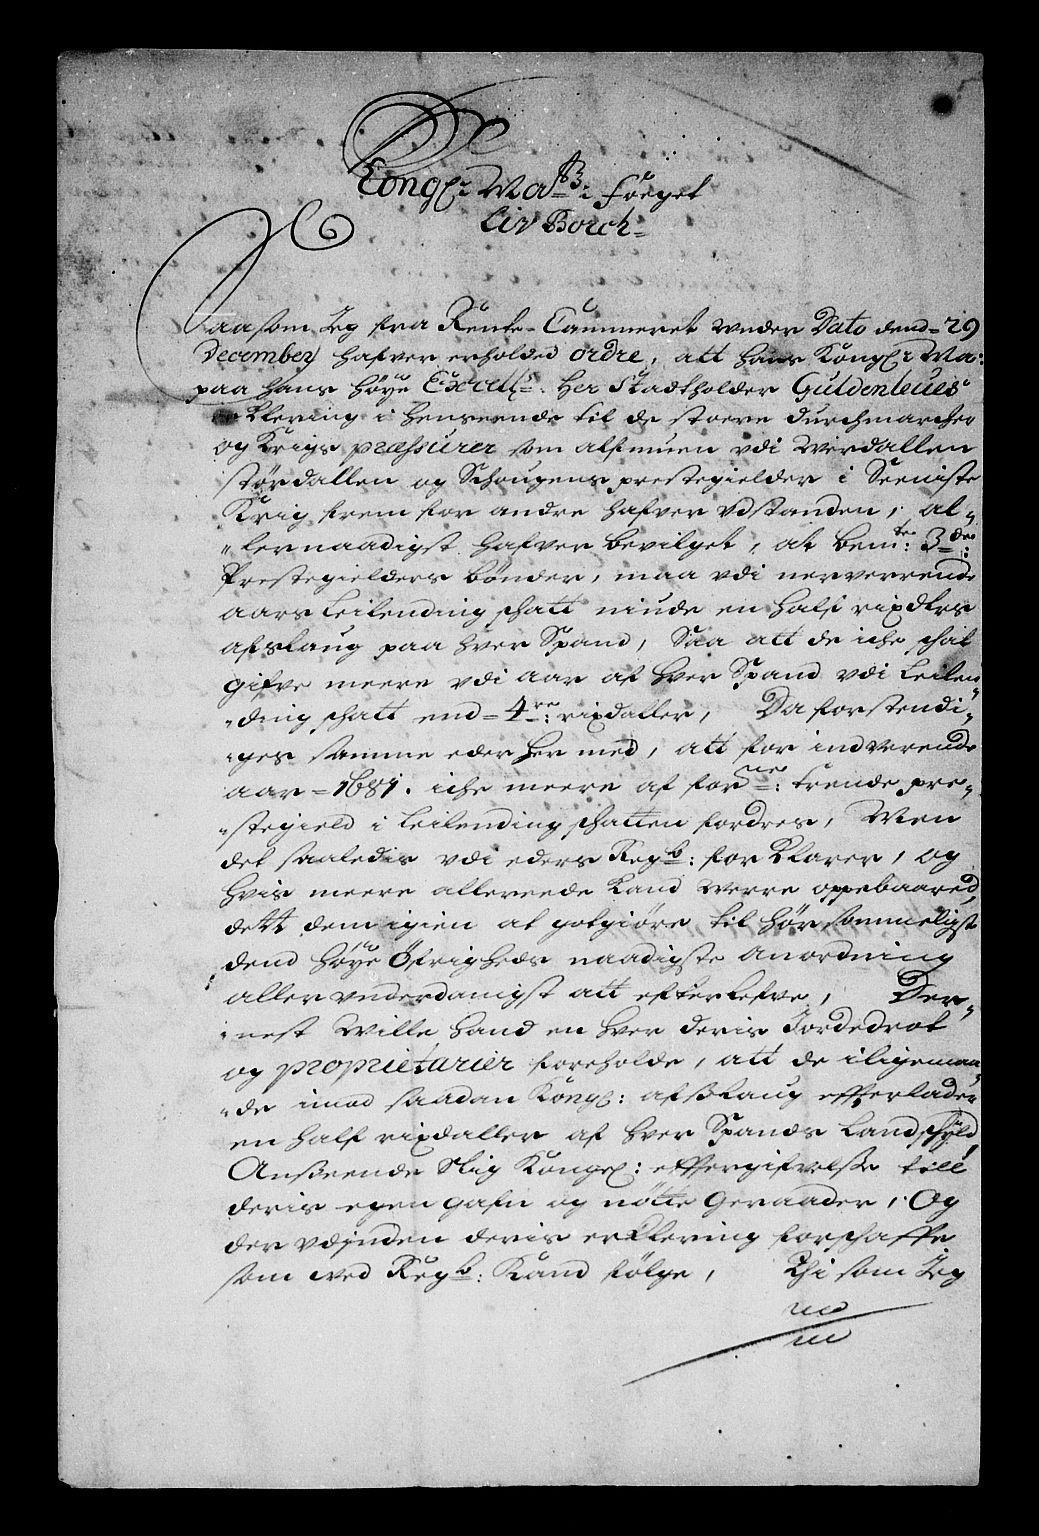 Kongl: Maÿttz: foeget
Siv Borch=
Saasom Jeg fra Rente=Cammeret under Dato dend= 29
December hafver erholded ordre, att hans Kongl: Ma:
paa hans høye Excell: Her Stadtholder Guldenleues
Klering i henseende til de stoere durchmarcher
og Krigs præssurer som alfmuen vdi Werdallen
størdallen og Schougens prestegielder i Seeniste
Krig frem for andre hafver vdstanden, al-
lernaadigst hafver bevilget, at bemte: 3de:
Prestegielders bønder, maa vdi nerverrende
aars Leilending schatt niude en half rixdlrs
afslaug paa hver Spand, Saa att de iche schal
gifve meere vdi aar af hver Spand vdi Leilen
ding schatt end= 4re: rixdaller, Da forstendi-
ges samme eder her med, att for indverende
aar= 1681. iche meere af forne: trende pre-
stegield i Leilending schatten fordres, Men
det saaledis vdi eders Regb: for Klarer, og
hvis meere allereede kand werre oppebaared,
dett dem igien at gotgiøre til hør sommeligst
dend høye Øfrigheds naadigste anordning
aller vnderdanigst att efterlefve, Der-
nest Wille hand en hver deris Jordedrot
og proprietarier foreholde, att de iligemaa-
de imod saadan Kongl: afslaug efterlader
en half rixdaller af hver Spands Landschyld
Anseende slig Kongl: eftergifvelse till
deris egen gafn og nøtte Geraader, Og
der vdjnden deris erklering forschaffe
som wed Regb: Kand følge, Thi som Jeg